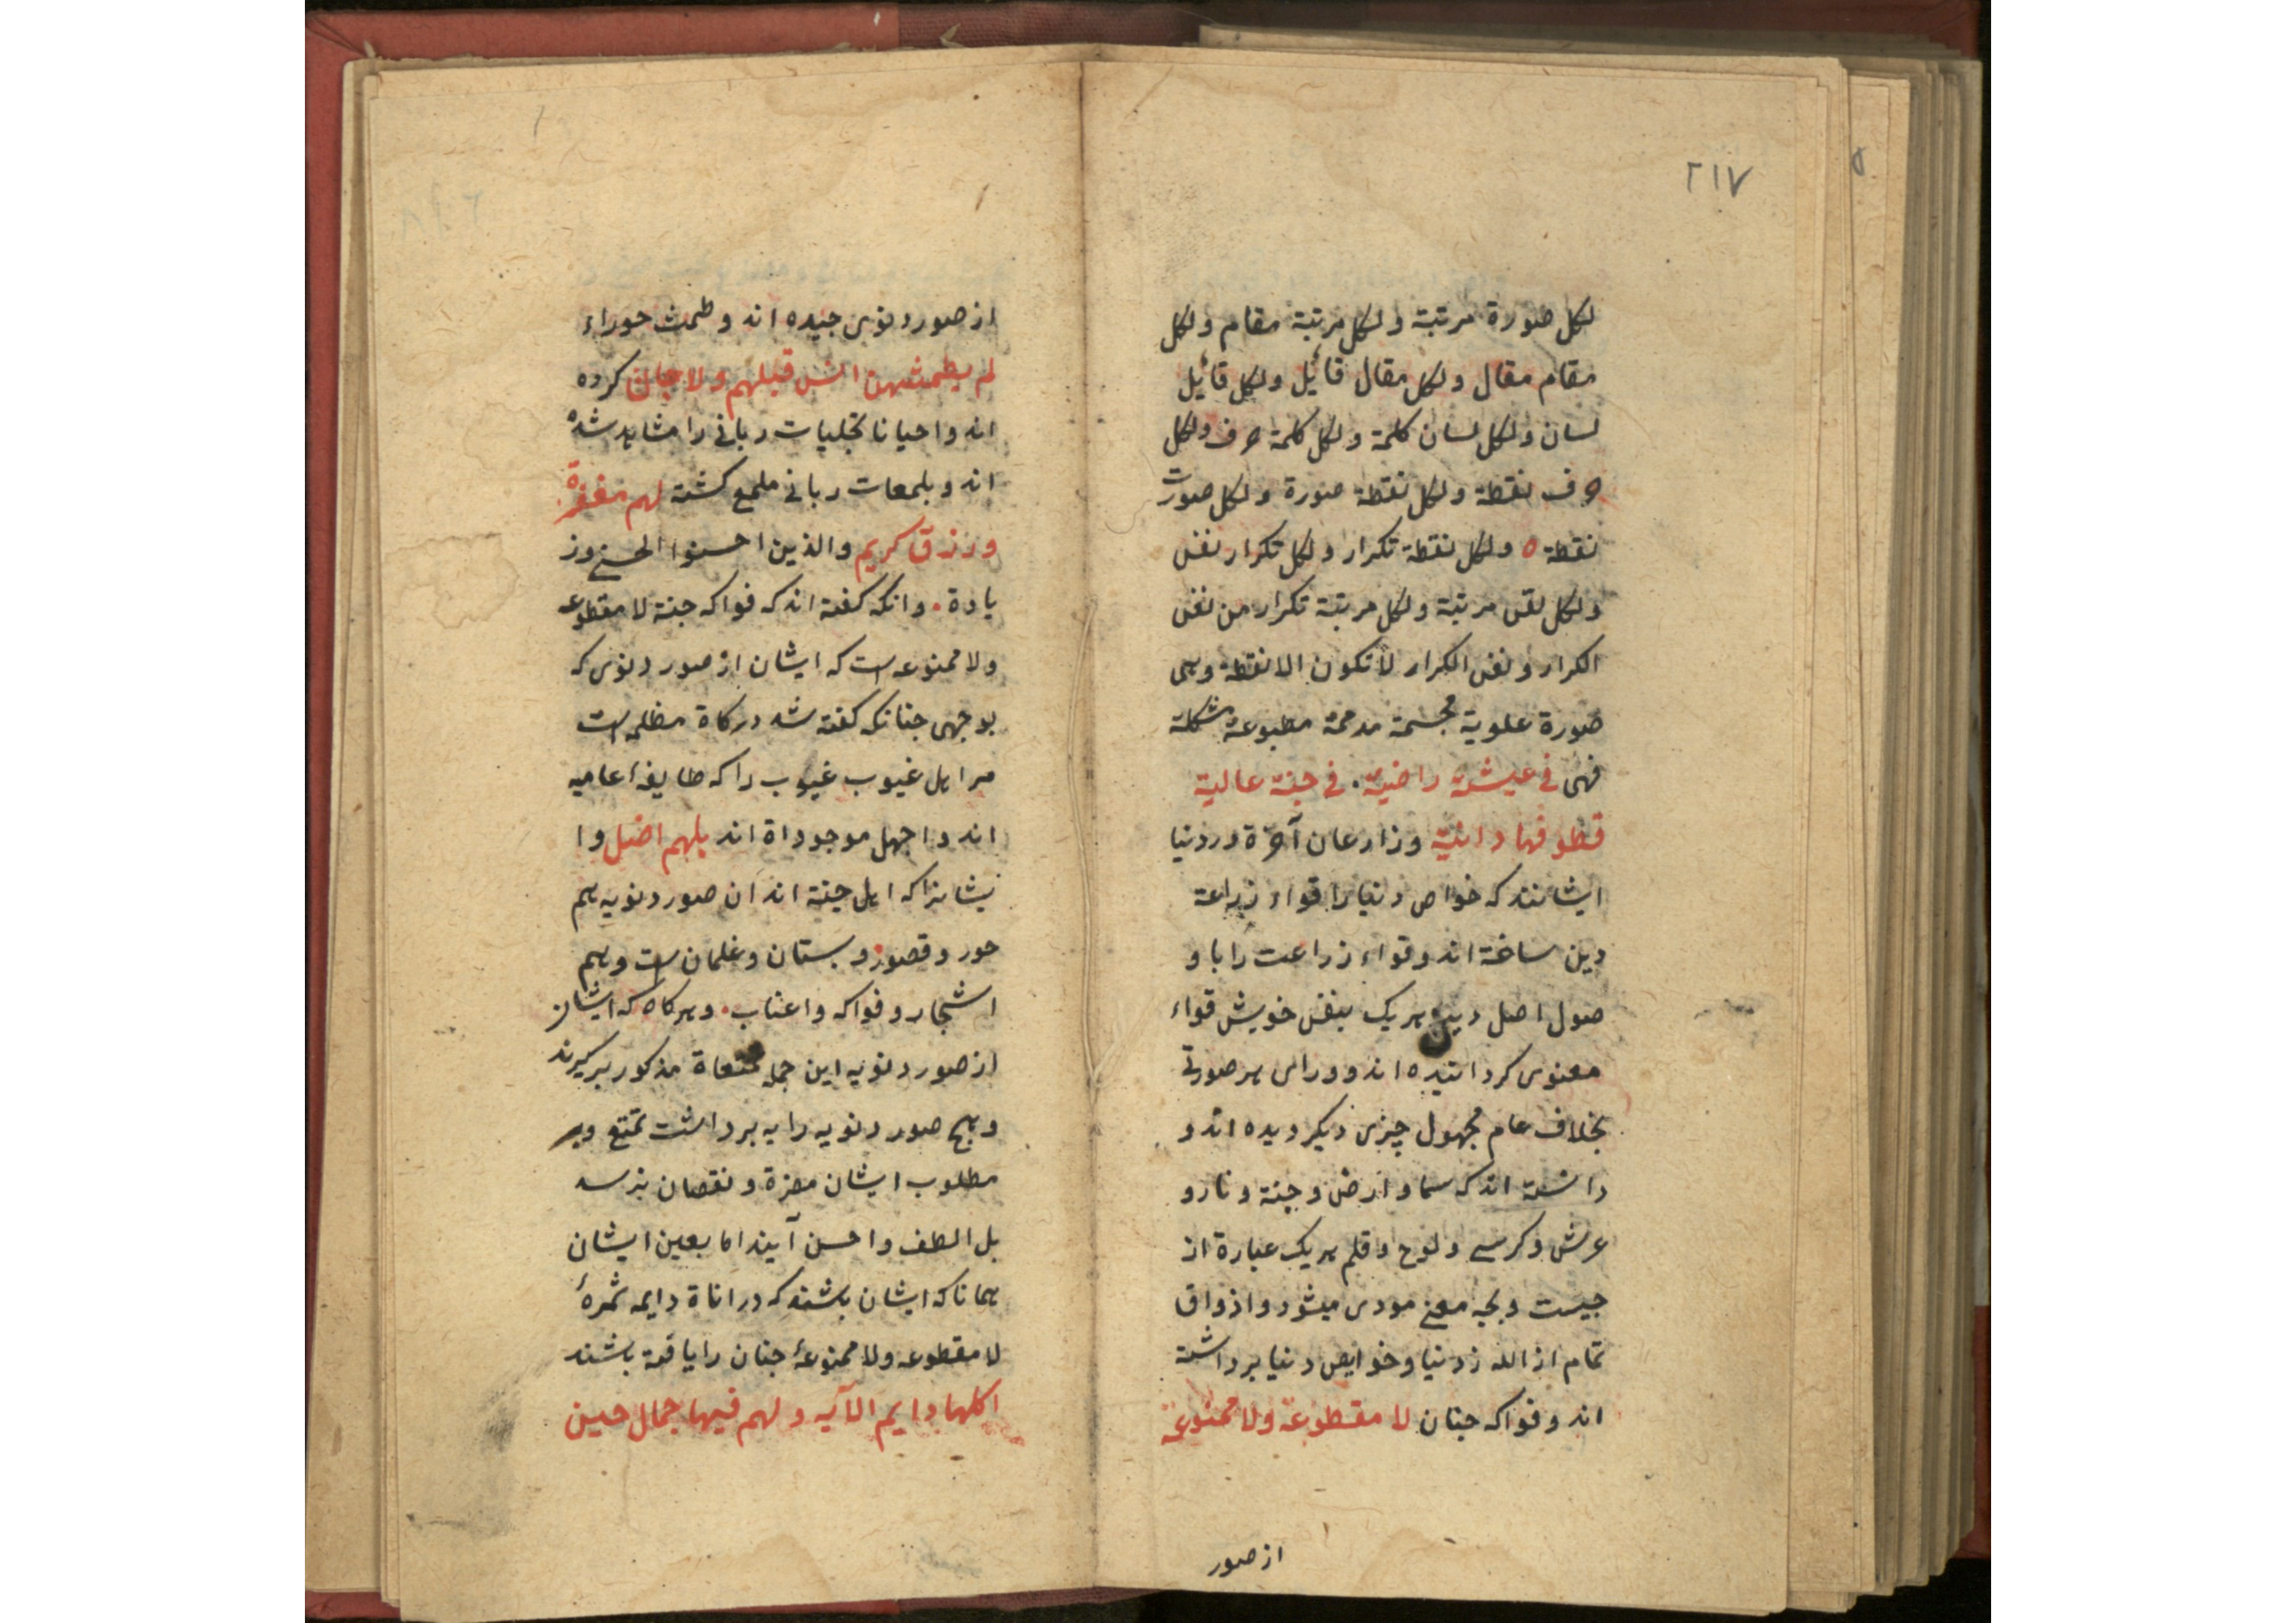 ٢١٧
لکل صورة مرتبة ولکل مرتبة مقام ولکل
مقام مقال ولکل مقال قائیل ولکل قائیل
لسان ولکل لسان کلمة ولکل کلمة حرف ولکل
حرف نقطة ولکل نقطة صورة ولکل صورت
نقطة ه ولکل نقطة تکرار ولکل تکرار نفس
ولکل نفس مرتبة ولکل مرتبة تکرار من نفس
الکرار ونفس الکرار لا تکون الا نقطة وهی
صورة علویة مجسمة مدمجة مطبوعة مشکلة
فهی فی عیشة راضیة. فی جنة عالیة
قطوفها دانیة وزارعان آخرة در دنیا
ایشانند که خواص دنیا را قواء زراعة
دین ساخته اند وقواء زراعت را با و
صول اصل دین هریک بنفس خویش قواء
معنوی کردانیده اند وورای هر صورتی
بخلاف عام مجهول چیزی دیکر دیده اند و
دانسته اند که سما وارض وجنة ونار و
عرش وکرسی ولوح وقلم هریک عبارة از
چیست وبچه معنی مودی میشود واذواق
تمام از الله ز دنیا وخوایص دنیا برداشته
اند وفواکه جنان لا مقطوعة ولا ممنوعة
از صور
از صور دنوی چیده اند وطمث حوراء
لم یطمثهن انس قبلهم ولا جان کرده
اند واحیانا تجلیات ربانی را مشاهد شده
اند وبلمعات ربانی ملمع کشته لهم مغفرة
ورزق کریم والذین احسنوا الحسنی وز
یادة. وانکه کفته اند که فواکه جنة لا مقطوعه
ولا ممنوعه است که ایشان از صور دنوی که
بوجهی چنانکه کفته شد درکاة مظلمه است
مر اهل غیوب غیوب را که طایفهٔ عامیه
اند واجهل موجوداة اند بلهم اضل وا
یشانرا که اهل جنة اند ان صور دنویه هم
حور وقصور وبستان وغلمان است وهم
اشجار وفواکه واعناب. وهرکاه که ایشان
از صور دنویه این جمله تمتعاة مذکور برکیرند
وهیچ صور دنویه را به برداشت تمتع وبر
مطلوب ایشان مضرة ونقصان نرسد
بل الطف واحسن آیند اما بعین ایشان
همانا که ایشان باشند که در اناة دایمه ثمرهٔ
لا مقطوعه ولا ممنوعهٔ جنان را یافته باشند
اکلها دایم الآیه ولهم فیها جمال حین